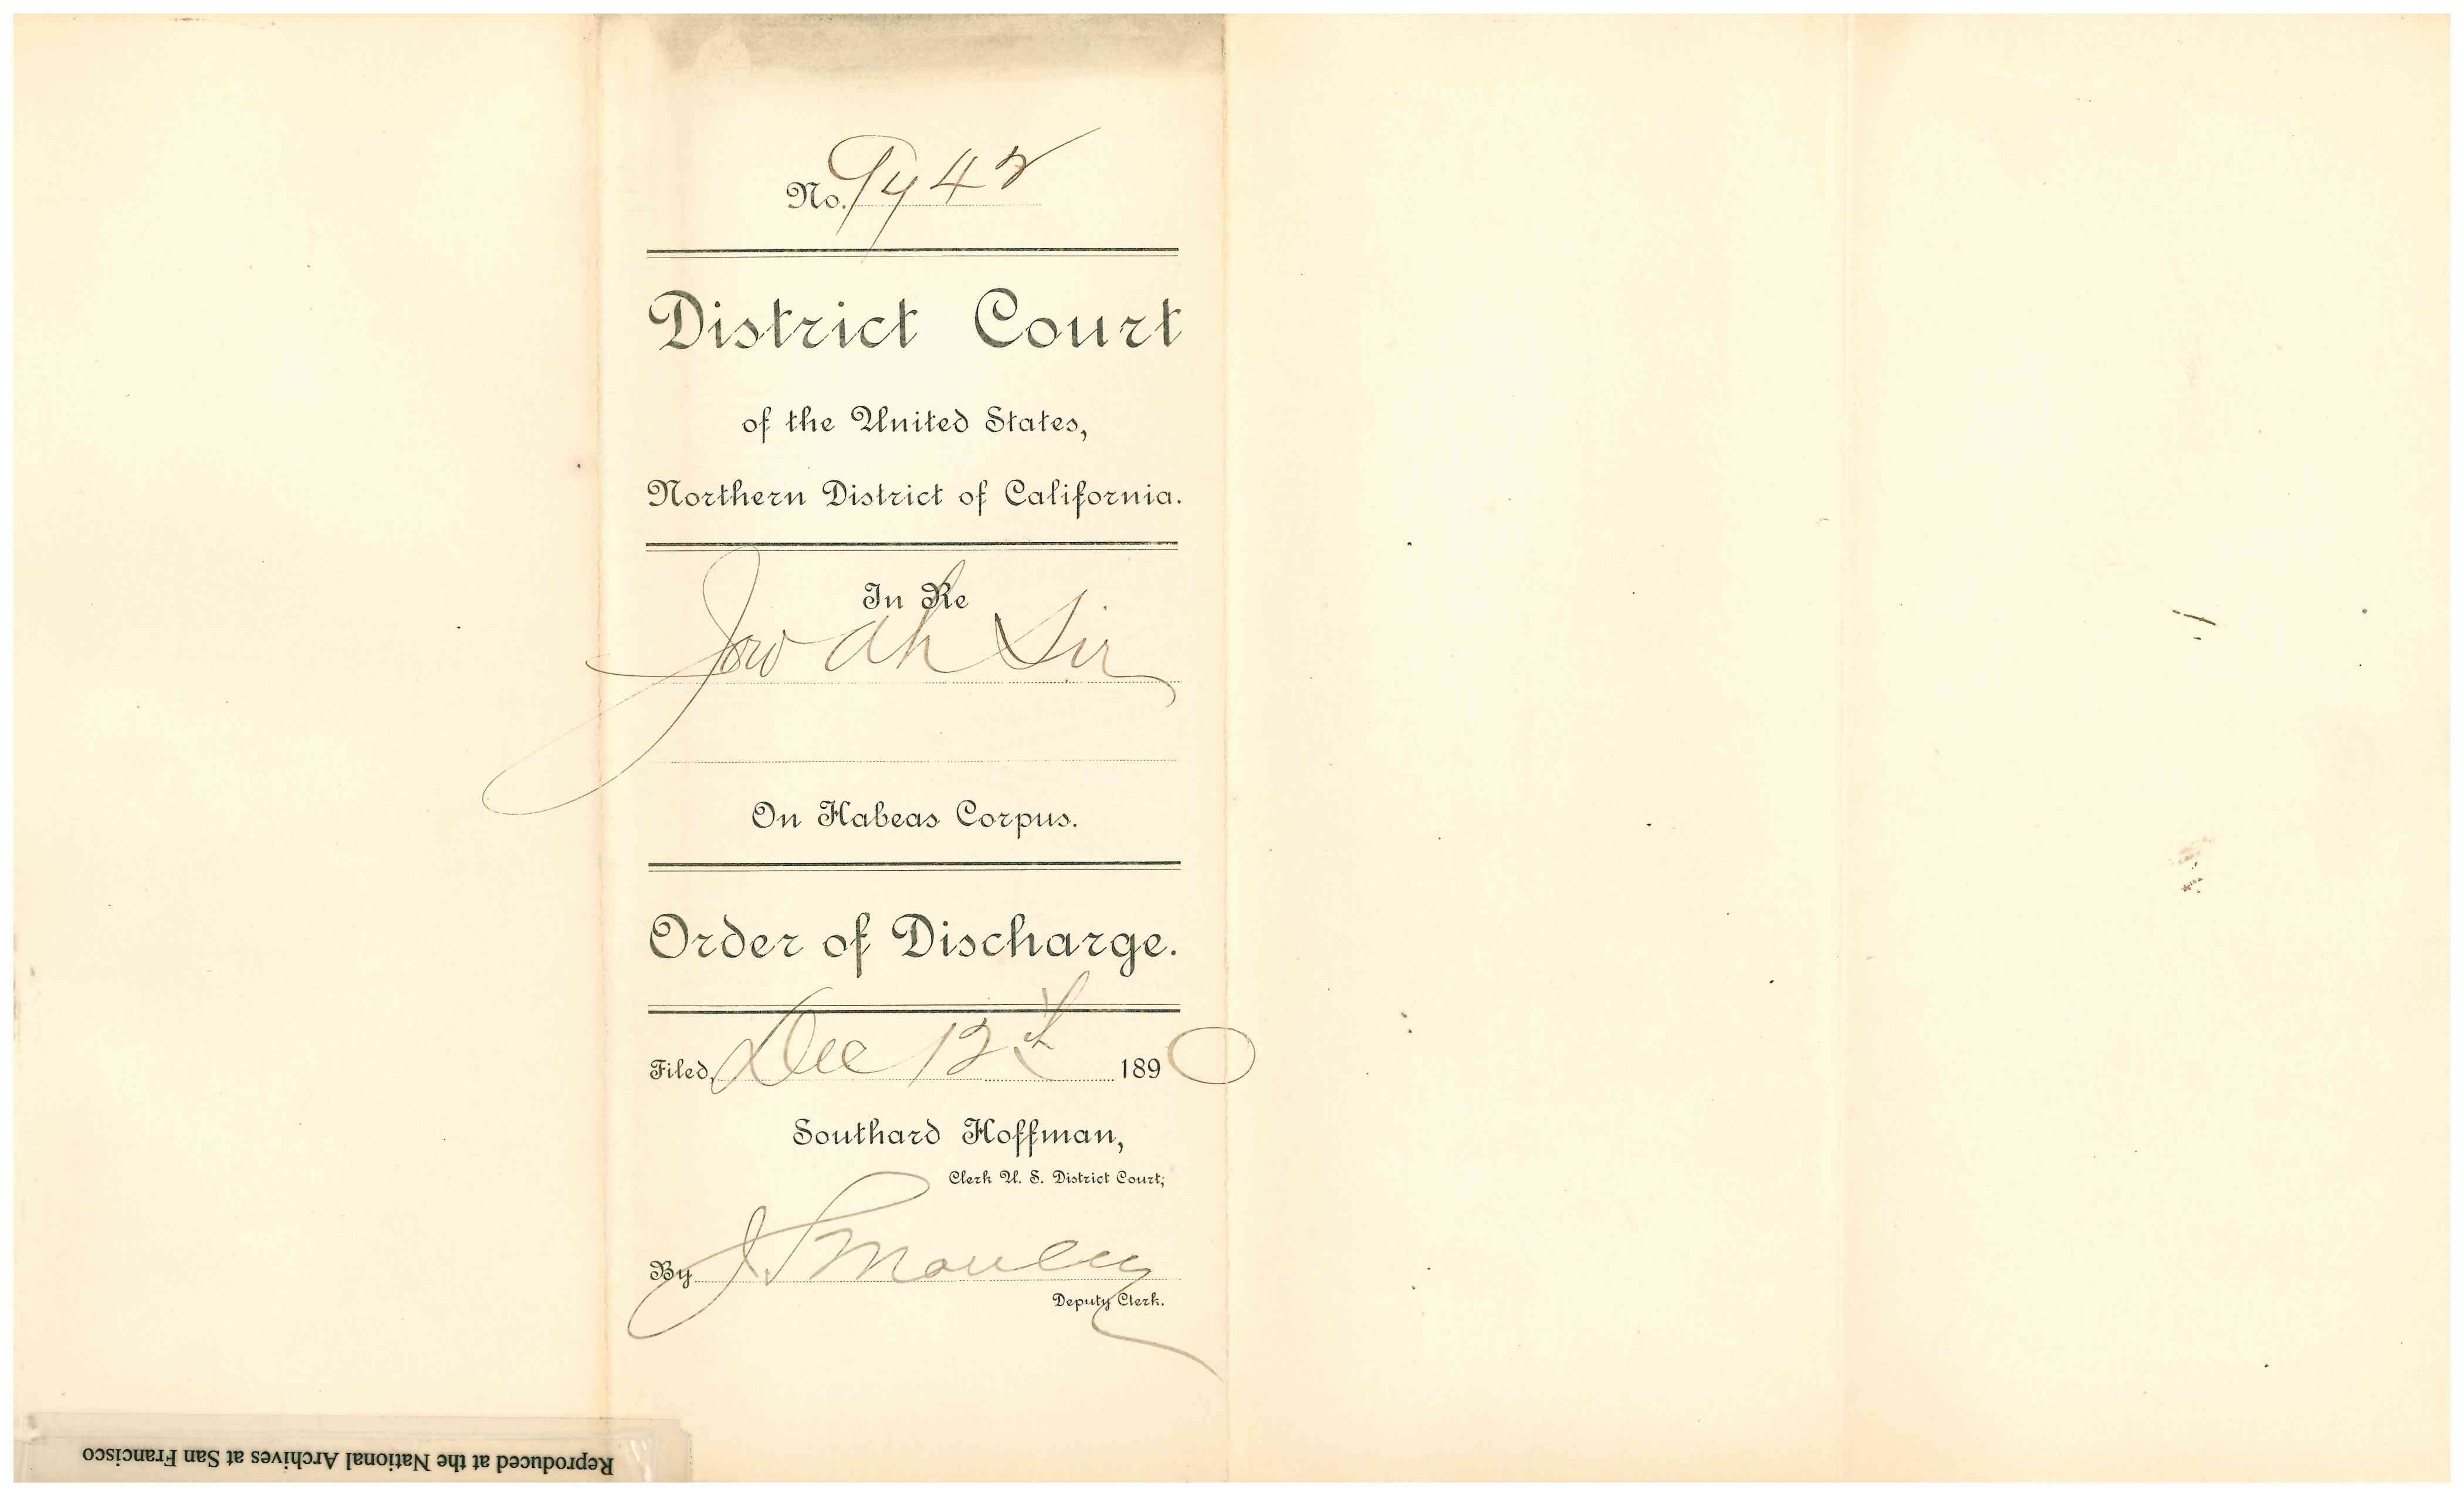 No. 9742
District Court
of the United States,
Northern District of California.
In Re
Jow Ah Sir
On Habeas Corpus.
Order of Discharge.
Filed, Dec 12th 1890
Southard Hoffman,
Clerk U. S. District Court,
By J. S. Manley
Deputy Clerk.
Reproduced at the National Archives at San Francisco